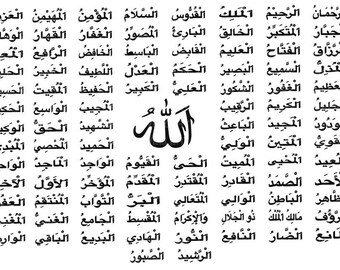 رحمان الرحيم الملك القدوس السلام المؤمن المهيمن العزيز
جبار المتكبر الخالق البارئ المصور الغفار القهار الوها
رزاق الفتاح العليم القابض الباسط الخافض الرافع المعز
المذل السميع البصير الحكم العدل اللطيف الخبير الحليم
العظيم الغفور الشكور العلي الكبير الحفيظ المقيت
الكريم الرقيب المجيب الواسع
ودود المجيد الباعث الشهيد الحق الوكيل
المتين الولي الحميد المحصي
الله
المميت الحي القيوم الواجد الماجد
الاحد الصمد القادر المقتدر المقدم المؤخر الأول الآخر
ظاهر الباطن الوالي المتعالي البر التواب المنتقم العفو
رؤوف مالك الملك ذو الجلال والإكرام المقسط الجامع الغني المغني
مانع الضار النافع النور الهادي البديع الباقي الوار
الرشيد الصبور